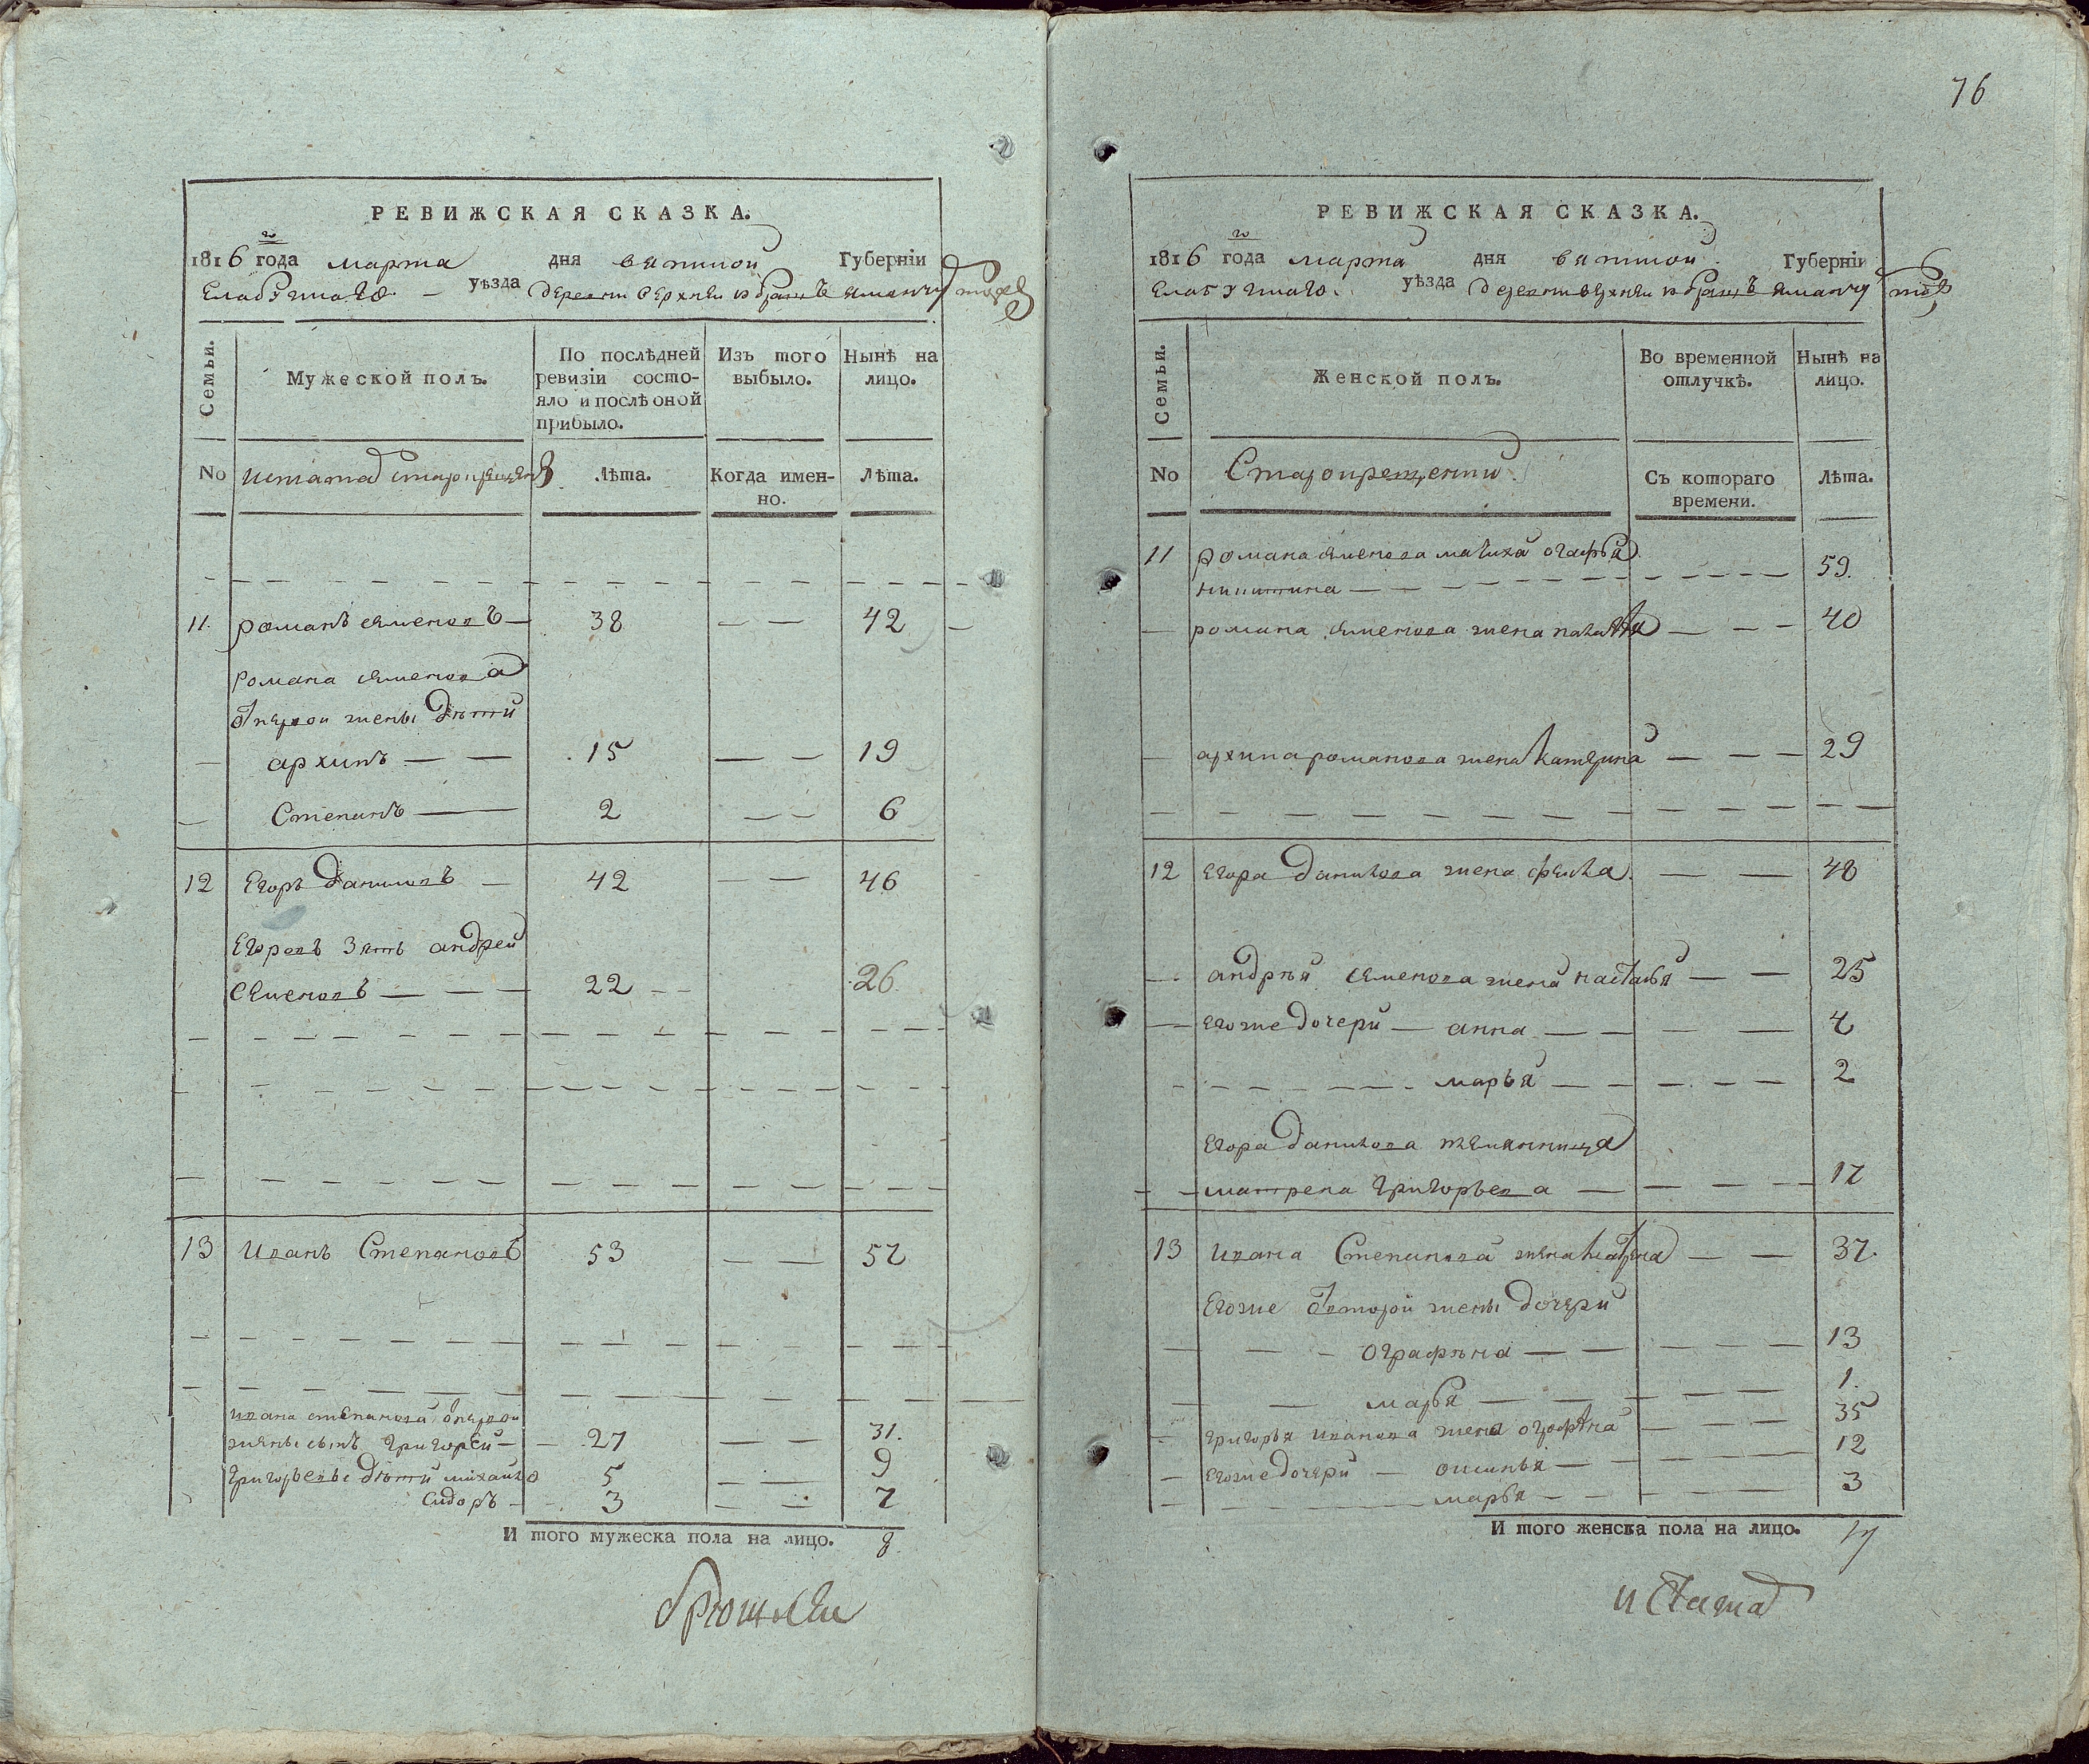 РЕВИЖСКАЯ СКАЗКА.
1816 го года марта дня вятской Губернiи
Елабугскаго уѣзда деревни верхней
Семьи.
Мужеской полъ.
По послѣдней ревизiи состояло и послѣ оной прибыло.
Изъ того выбыло.
Нынѣ на лицо.
No
Лѣта.
Когда именно.
Лѣта.
11. романъ семеновъ 38 42
романа семенова
от первой жены дѣти
архипъ 15 19
Степанъ 2 6
12 Егоръ даниловъ 42 46
Егоровъ зять андрей
семеновъ 22 26
13 иванъ Степановъ 53 57
ивана степанова от первой
жены сынъ григорей 27 31.
григорьевы дѣти михайло 5 9
сидоръ 3 7
И того мужеска пола на лицо. 8
76
РЕВИЖСКАЯ СКАЗКА.
1816 го года марта дня вятской Губернiи
Елабугскаго уѣзда деревни верхней
Семьи.
Женской полъ.
Во временной отлучкѣ.
Нынѣ на лицо.
No
Старокрещенни
Съ котораго времени.
Лѣта.
11 романа семенова мачиха огафья
никитина 59.
романа семенова жена 40
архипа романова жена катерина 29
12 егора данилова жена фекла 48
андрѣя семенова жена настасья 25
егоже дочери анна 4
марья 2
егора данилова племянница
матрена григорьева 17
13 ивана Степанова жена 37.
егоже от второй жены дочери
ографѣна 13
марья 1.
григорья иванова жена ографѣна 35
егоже дочери 12
марья 3
И того женска пола на лицо. 17